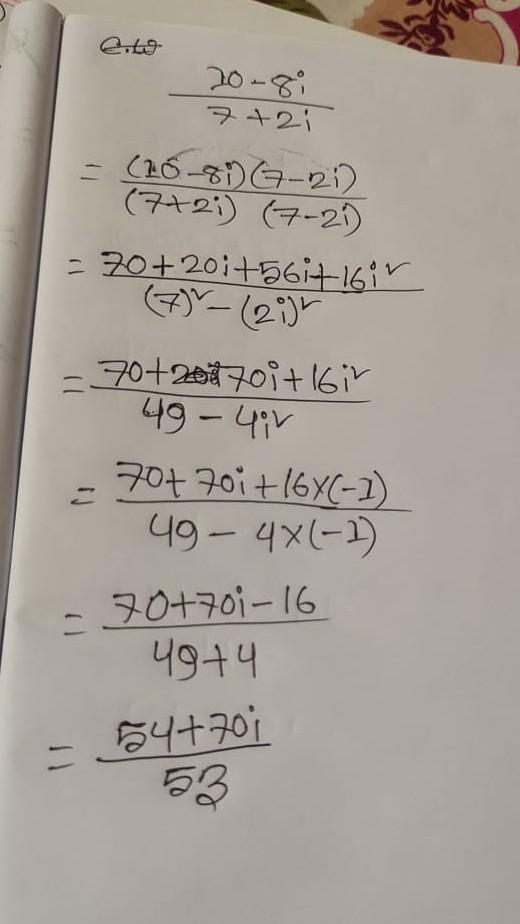 C.W
10-8i
7+2i
= (10-8i)(7-2i)
(7+2i) (7-2i)
= 70+20i+56i+16i²
(7)² - (2i)²
= 70+70i+16i²
49 - 4i²
= 70+70i+16×(-1)
49 - 4×(-1)
= 70+70i-16
49+4
= 54+70i
53